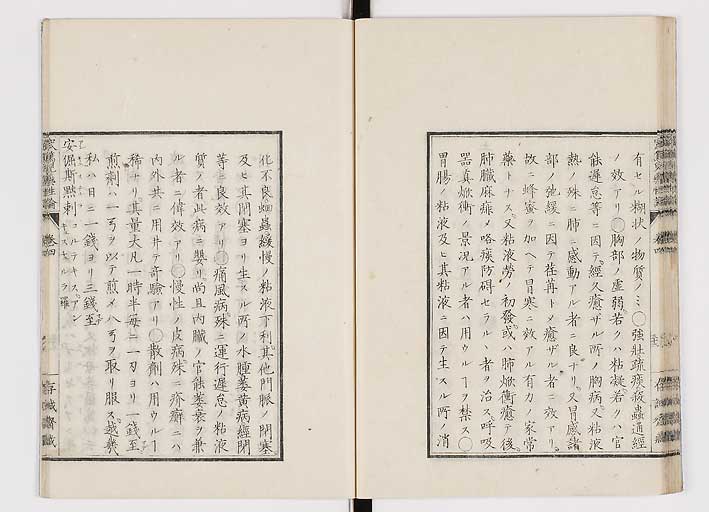 有セル糊狀ノ物質ノミ○強壯疏瘀殺蟲通經
ノ效アリ○胸部ノ虛弱若クハ粘凝若クハ官
能遲怠等ニ因テ經久癒ザル所ノ胸病又粘液
熱ノ殊ニ肺ニ感動アル者ニ良ナリ又冒感諸
部ノ弛緩ニ因テ荏苒トメ癒ザル者ニ效アリ
故ニ蜂蜜ヲ加ヘテ冒寒ニ效アル有力ノ家常
藥トナス又粘液勞ノ初發或ハ肺焮衝癒テ後
肺臟麻痺メ咯痰防碍セラルヽ者ヲ治ス呼吸
器眞焮衝ノ景況アル者ハ用ウルヿヲ禁ス○
胃腸ノ粘液及ヒ其粘液ニ因テ生スル所ノ消
化不良蛔蟲緩慢ノ粘液下利其他門脈ノ閉塞
及ヒ其閉塞ヨリ生スル所ノ水腫萎黃病經閉
等ニ良效アリ○痛風病殊ニ運行遲怠ノ粘液
質ノ者此病ニ嬰リ尚且內臟ノ官能萎衰ヲ兼
ル者ニ偉效アリ○慢性ノ皮病殊ニ疥癬ニハ
內外共ニ用井テ奇驗アリ○散劑ハ用ウルヿ
稀ナリ其量大凡一時半每ニ一刃ヨリ一錢至
煎劑ハ一弓ヲ以テ煎メ八弓ヲ取リ服ス越幾
私ハ日ニ一錢ヨリ三錢至
卷四